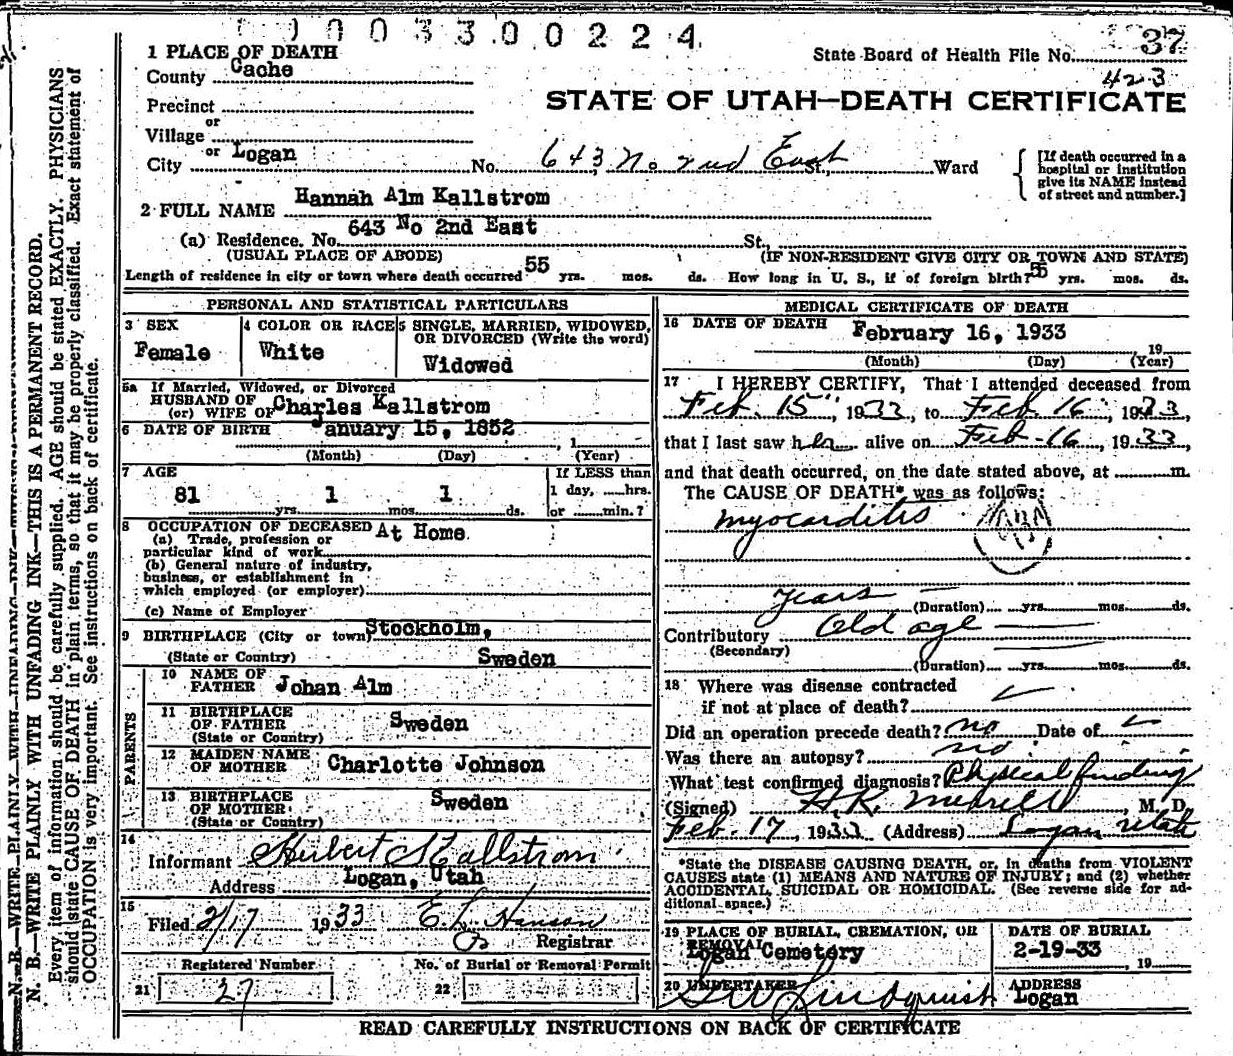 0 0 0 3 3 0 0 2 2 4
1 PLACE OF DEATH
State Board of Health File No. 37
County Cache
423
Precinct
STATE OF UTAH—DEATH CERTIFICATE
or
Village
or
City Logan No. 643 No 2nd East St., Ward
[If death occurred in a hospital or institution give its NAME instead of street and number.]
2 FULL NAME Hannah Alm Kallstrom
(a) Residence. No. 643 No 2nd East St.,
(USUAL PLACE OF ABODE) (IF NON-RESIDENT GIVE CITY OR TOWN AND STATE)
Length of residence in city or town where death occurred 55 yrs. mos. ds. How long in U. S., if of foreign birth? 55 yrs. mos. ds.
PERSONAL AND STATISTICAL PARTICULARS
3 SEX
Female
4 COLOR OR RACE
White
5 SINGLE, MARRIED, WIDOWED,
OR DIVORCED (Write the word)
Widowed
5a If Married, Widowed, or Divorced
HUSBAND OF
(or) WIFE OF Charles Kallstrom
6 DATE OF BIRTH January 15, 1852 , 1
(Month) (Day) (Year)
7 AGE
81 yrs. 1 mos. 1 ds.
If LESS than
1 day, hrs.
or min.?
8 OCCUPATION OF DECEASED At Home
(a) Trade, profession or
particular kind of work
(b) General nature of industry,
business, or establishment in
which employed (or employer)
(c) Name of Employer
9 BIRTHPLACE (City or town) Stockholm,
(State or Country) Sweden
PARENTS
10 NAME OF
FATHER Johan Alm
11 BIRTHPLACE
OF FATHER Sweden
(State or Country)
12 MAIDEN NAME
OF MOTHER Charlotte Johnson
13 BIRTHPLACE
OF MOTHER Sweden
(State or Country)
14
Informant Herbert Kallstrom
Address Logan, Utah
15
Filed 2/17 1933 E. L. Hanson
Registrar
Registered Number
21 27
No. of Burial or Removal Permit
22
MEDICAL CERTIFICATE OF DEATH
16 DATE OF DEATH February 16, 1933
19
(Month) (Day) (Year)
17 I HEREBY CERTIFY, That I attended deceased from
Feb. 15, 1933, to Feb 16, 1933,
that I last saw her alive on Feb-16, 1933,
and that death occurred, on the date stated above, at m.
The CAUSE OF DEATH* was as follows:
myocarditis
years (Duration) yrs. mos. ds.
Contributory Old age
(Secondary)
(Duration) yrs. mos. ds.
18 Where was disease contracted
if not at place of death?
Did an operation precede death? no Date of
Was there an autopsy? no
What test confirmed diagnosis? Physical finding
(Signed) H.K. Merrill, M. D.
Feb-17, 1933 (Address) Logan Utah
*State the DISEASE CAUSING DEATH, or, in deaths from VIOLENT
CAUSES state (1) MEANS AND NATURE OF INJURY; and (2) whether
ACCIDENTAL, SUICIDAL OR HOMICIDAL. (See reverse side for ad-
ditional space.)
19 PLACE OF BURIAL, CREMATION, OR
REMOVAL Logan Cemetery
DATE OF BURIAL
2-19-33 , 19
20 UNDERTAKER
Lindquist
ADDRESS
Logan
READ CAREFULLY INSTRUCTIONS ON BACK OF CERTIFICATE
N. B.—WRITE PLAINLY WITH UNFADING INK—THIS IS A PERMANENT RECORD.
Every item of information should be carefully supplied. AGE should be stated EXACTLY. PHYSICIANS
should state CAUSE OF DEATH in plain terms, so that it may be properly classified. Exact statement of
OCCUPATION is very important. See instructions on back of certificate.